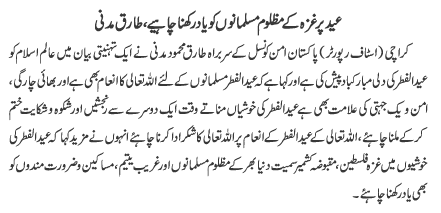 عید پر غزہ کے مظلوم مسلمانوں کو یاد رکھنا چاہیے، طارق مدنی
کراچی (اسٹاف رپورٹر) پاکستان امن کونسل کے سربراہ طارق محمود مدنی نے ایک تہنیتی بیان میں عالم اسلام کو
عید الفطر کی دلی مبارکباد پیش کی ہے اور کہا ہے کہ عید الفطر مسلمانوں کے لئے اللہ تعالیٰ کا انعام بھی ہے اور بھائی چارگی،
امن و یک جہتی کی علامت بھی ہے عید الفطر کی خوشیاں مناتے وقت ایک دوسرے سے رنجشیں اور شکوہ و شکایت ختم
کر کے ملنا چاہئے، اللہ تعالیٰ کے عید الفطر کے انعام پر اللہ تعالیٰ کا شکر ادا کرنا چاہئے انہوں نے مزید کہا کہ عید الفطر کی
خوشیوں میں غزہ فلسطین، مقبوضہ کشمیر سمیت دنیا بھر کے مظلوم مسلمانوں اور غریب یتیم، مساکین و ضرورت مندوں کو
بھی یاد رکھنا چاہئے۔